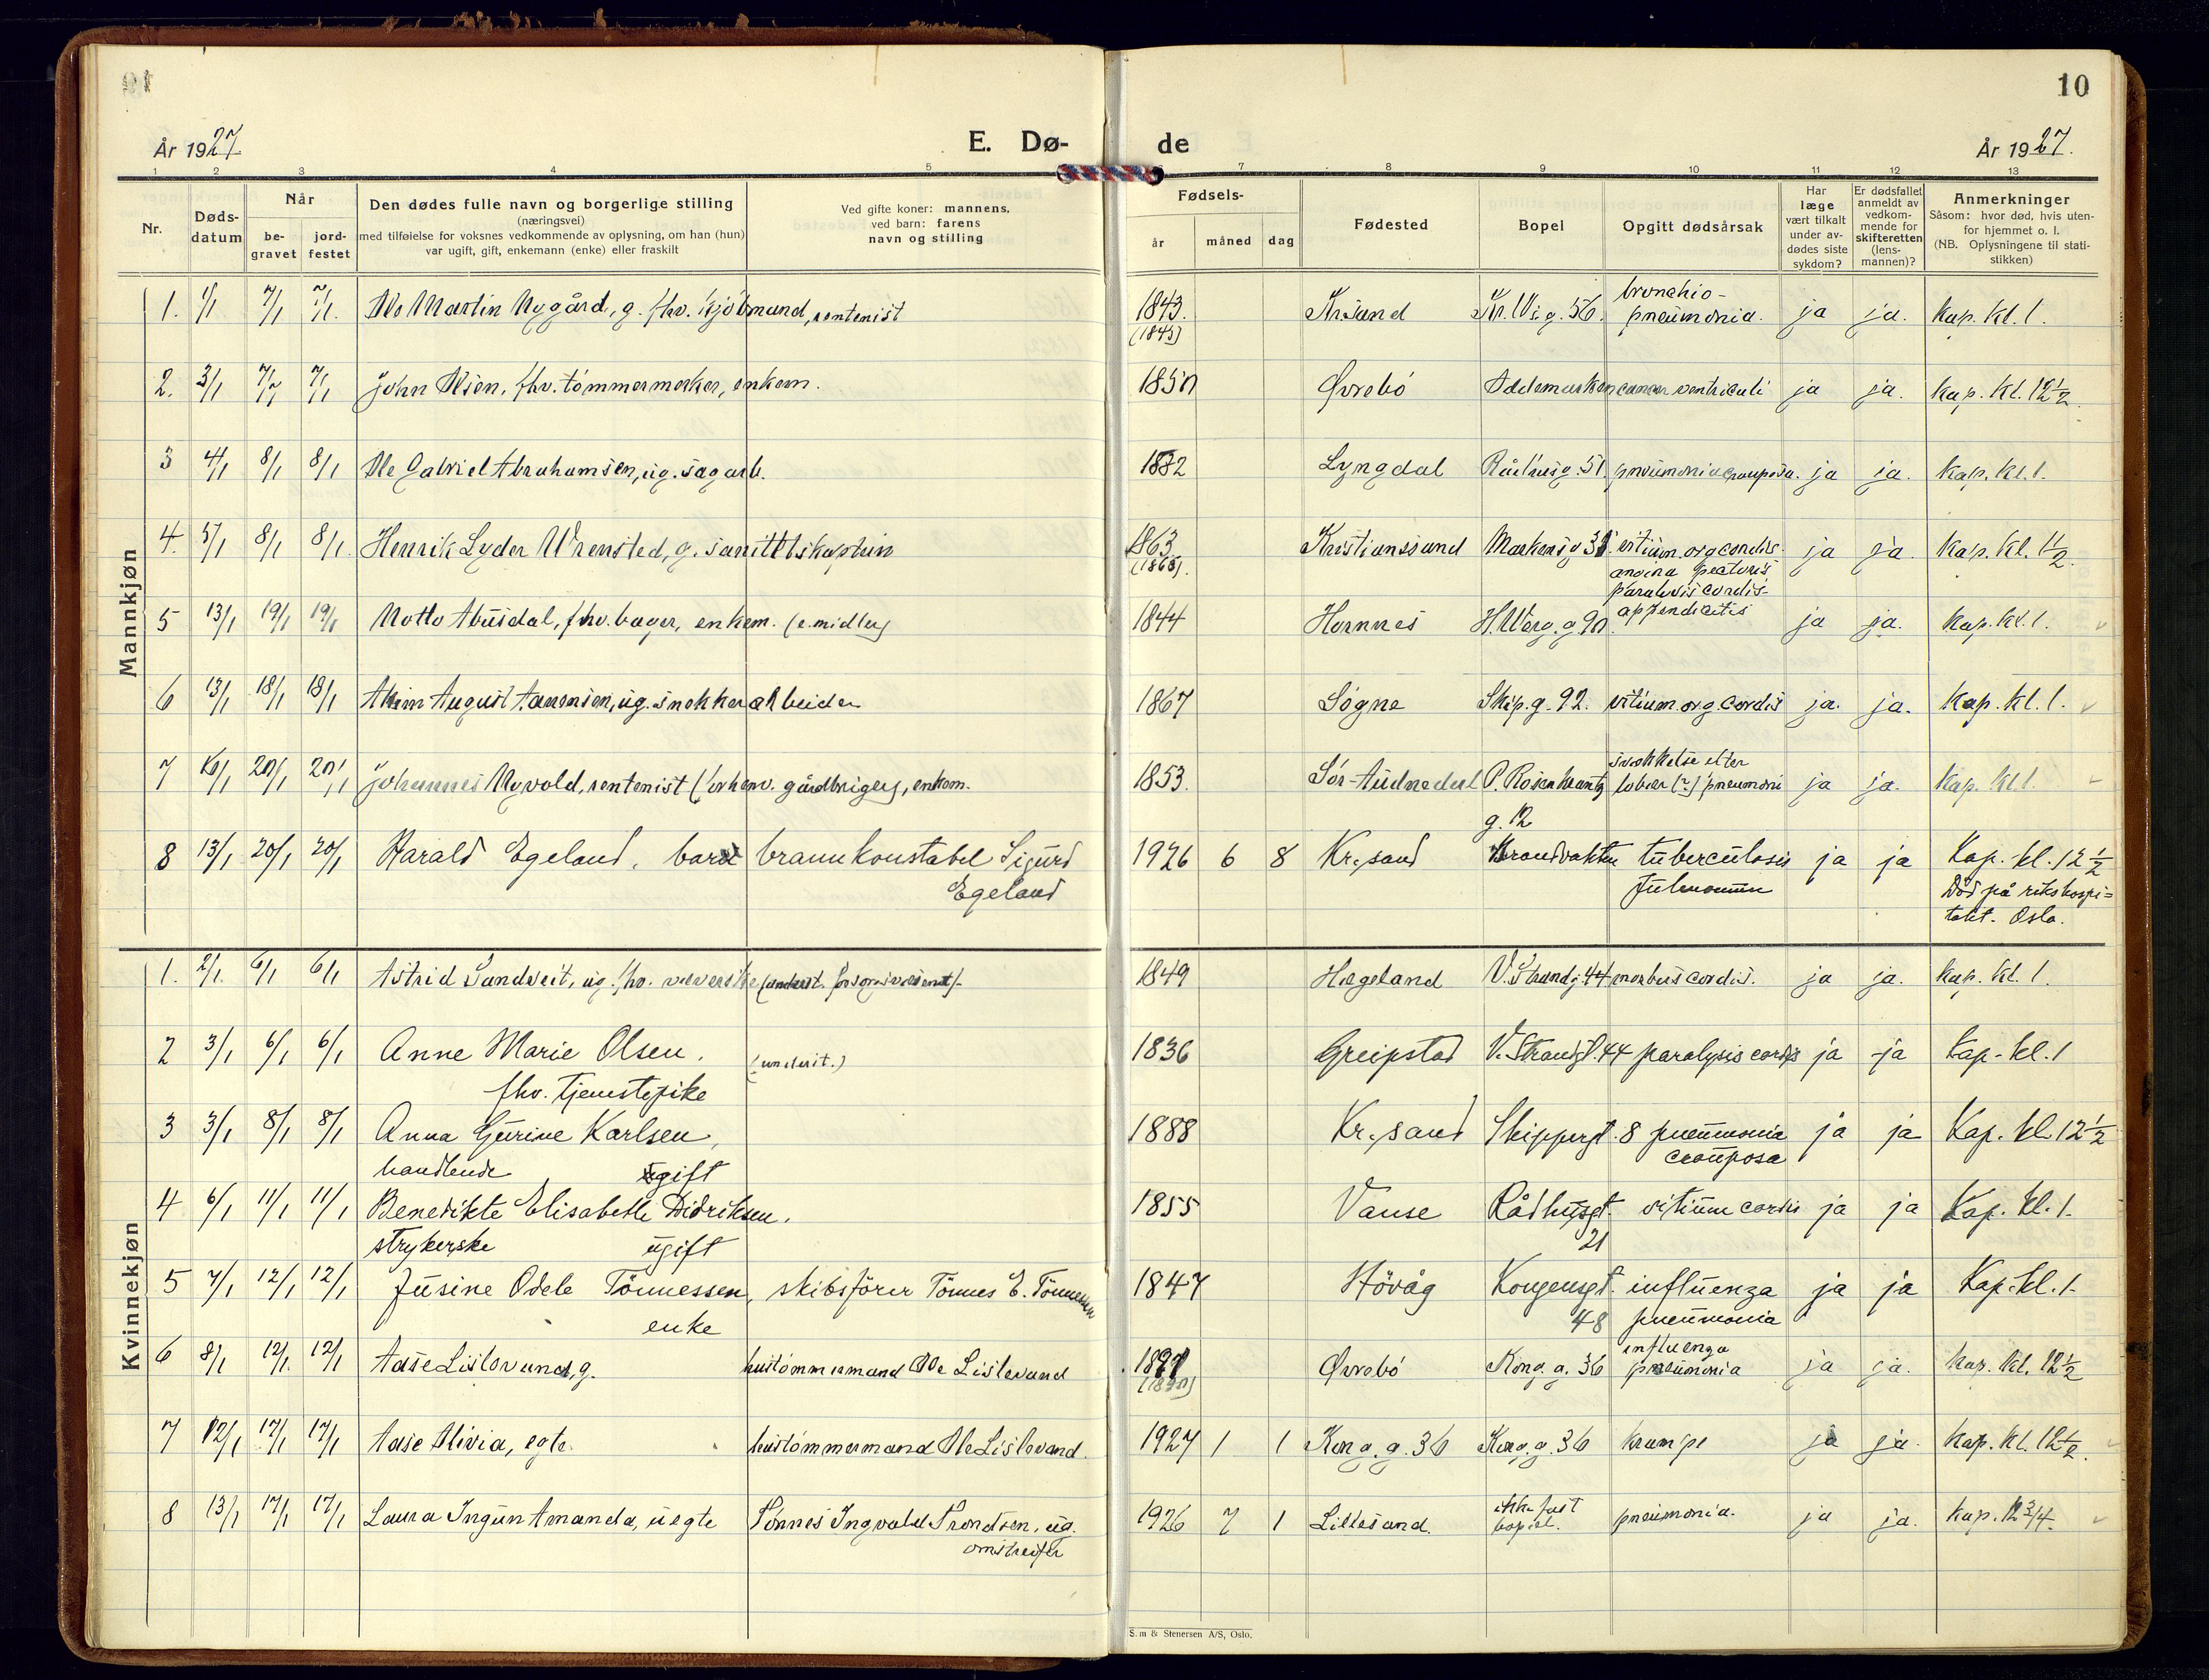 10
År 1927
E. Dø- de
År 1927.
1 2 3 4 5 7 8 9 10 11 12 13
Nr.
Døds-
datum
Når
be-
gravet
jord-
festet
Den dødes fulle navn og borgerlige stilling
(næringsvei)
med tilføielse for voksnes vedkommende av oplysning, om han (hun)
var ugift, gift, enkemann (enke) eller fraskilt
Ved gifte koner: mannens,
ved barn: farens
navn og stilling
Fødsels-
år
måned
dag
Fødested
Bopel
Opgitt dødsårsak
Har
læge
vært tilkalt
under av-
dødes siste
sykdom?
Er dødsfallet
anmeldt av
vedkom-
mende for
skifteretten
(lens-
mannen)?
Anmerkninger
Såsom: hvor død, hvis uten-
for hjemmet o. l.
(NB. Oplysningene til stati-
stikken)
Mannkjøn
1. 1/1 7/1 7/1. Ole Martin Nygård, g. fhv. kjøbmand, rentenist 1843. Kr.sand Kr. IV g. 56. bronchio- ja ja. Kap. Kl. 1.
(1843) pneumonia.
2. 3/1 7/1 7/1 John Olsen, fhv. tömmermerker, enkem. 1850 Øvrebö Oddemarken cancer ventriculi ja ja. Kap. Kl. 12 1/2.
3 4/1 8/1 8/1 Ole Gabriel Abrahamsen, ug. sagarb. 1882 Lyngdal Rådhusg. 51. pneumonia crouposa. ja ja. Kap. Kl. 1.
4. 5/1 8/1 8/1. Henrik Lyder Wrensted, g. sanitetskaptein 1863 Kristianssund Markensg 35 vitium org cordis. ja ja. Kap. Kl. 1 1/2.
(1863). angina pectoris
paralysis cordis-
5 13/1 19/1 19/1 Notto Abusdal, fhv. bager, enkem. (e. midler) 1844 Hornnes H. Werg. g 90. appendicitis ja ja. Kap. Kl. 1.
6 13/1 18/1 18/1 August Aanensen, ug. snekkerarbeider 1867 Sögne Skip. g. 92. vitium. org. cordis ja. ja. Kap. Kl. 1.
7 16/1 20/1 20/1 Johannes Nyvold, rentenist (forhenv. gårdbruger), enkem. 1853. Sör-Audnedal P. Rosenkrantz svækkelse efter ja ja. Kap. Kl. 1
g. 12 lobær (?) pneumoni
8 13/1 20/1 20/1 Harald Egeland. barn brannkonstabel Sigurd 1926 6 8 Kr.sand Brandvakten tuberculosis ja ja Kap. kl. 12 1/2
Egeland pulmonum Död på rikshospi=
talet. Oslo.
Kvinnekjøn
1. 2/1. 6/1 6/1 Astrid Sundveit, ug. fhv. væverske (underst. forsorgsvæsenet). 1849 Hægeland V. Strandg. 44 morbus cordis. ja ja. Kap. Kl. 1.
2 3/1 6/1 6/1 Anne Marie Olsen. (underst.) 1836 Greipstad V. Strandgt. 44 paralysis cordis ja ja Kap. kl. 1
fhv. tjenestepike
3 3/1 8/1 8/1 Anna Gurine Karlsen, 1888 Kr.sand Skippergt. 8 pneumonia ja ja Kap. kl. 12 1/2
handlende ugift crouposa
4 6/1 11/1 11/1 Benedikte Elisabeth Didriksen. 1855 Vanse Rådhusgt. vitium cordis ja ja Kap. kl. 1.
strykerske ugift 21
5 7/1 12/1 12/1 Jusine Odele Tönnessen, skibsförer Tönnes E. Tönnessen 1847 Hövåg Kongensgt. influenza ja ja Kap. kl. 1.
enke 48 pneumonia
6 8/1 12/1. 12/1 Aase Lislevand, g. hustömmermand Ole Lislevand Øvrebö Kong. g. 36 influenza ja ja. Kap. Kl. 12 1/2
pneumonia
7 12/1 17/1 17/1 Aase Olivia, egte. hustömmermand Ole Lislevand. 1927 1 1 Kong. g. 36 Kong. g. 36 krampe ja ja. Kap. Kl. 12 1/2.
8 13/1 17/1 17/1 Laura Ingun Amanda, uegte Tönnes Ingvald Trondsen, ug. 1926 7 1 Lillesand. ikke fast pneumonia. ja ja. Kap. 12 3/4.
omstreifer bopæl.
S.m & Stenersen A/S, Oslo.